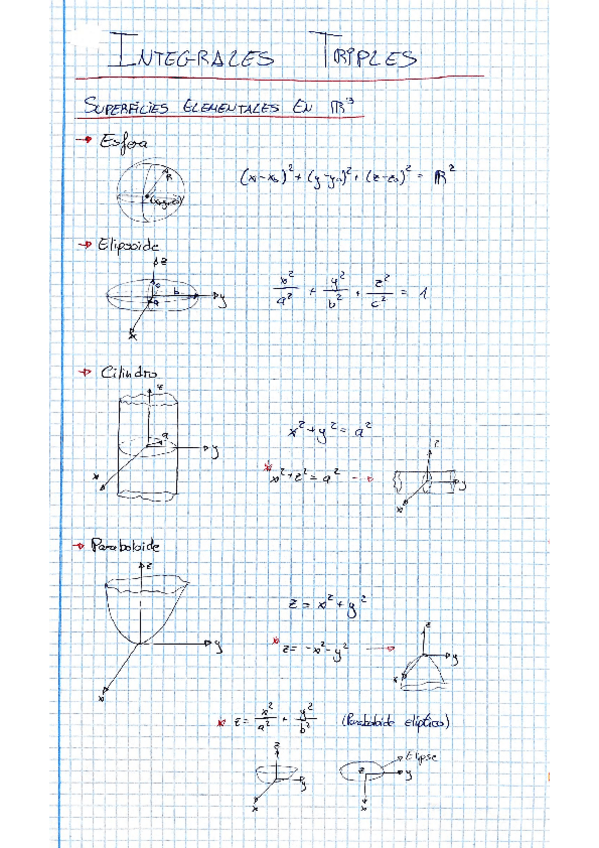 INTEGRALES TRIPLES
SUPERFICIES ELEMENTALES EN ℝ³
→ Esfera
R
(x₀,y₀,z₀)
(x-x₀)² + (y-y₀)² + (z-z₀)² = R²
→ Elipsoide
z
c
b
a
y
x
x²/a² + y²/b² + z²/c² = 1
→ Cilindro
z
a
y
x
x² + y² = a²
* x² + z² = a² →
z
y
x
→ Paraboloide
z
y
x
z = x² + y²
* z = -x² - y² →
z
y
x
* z = x²/a² + y²/b² (Paraboloide elíptico)
z
y
x
Elipse
z
y
x